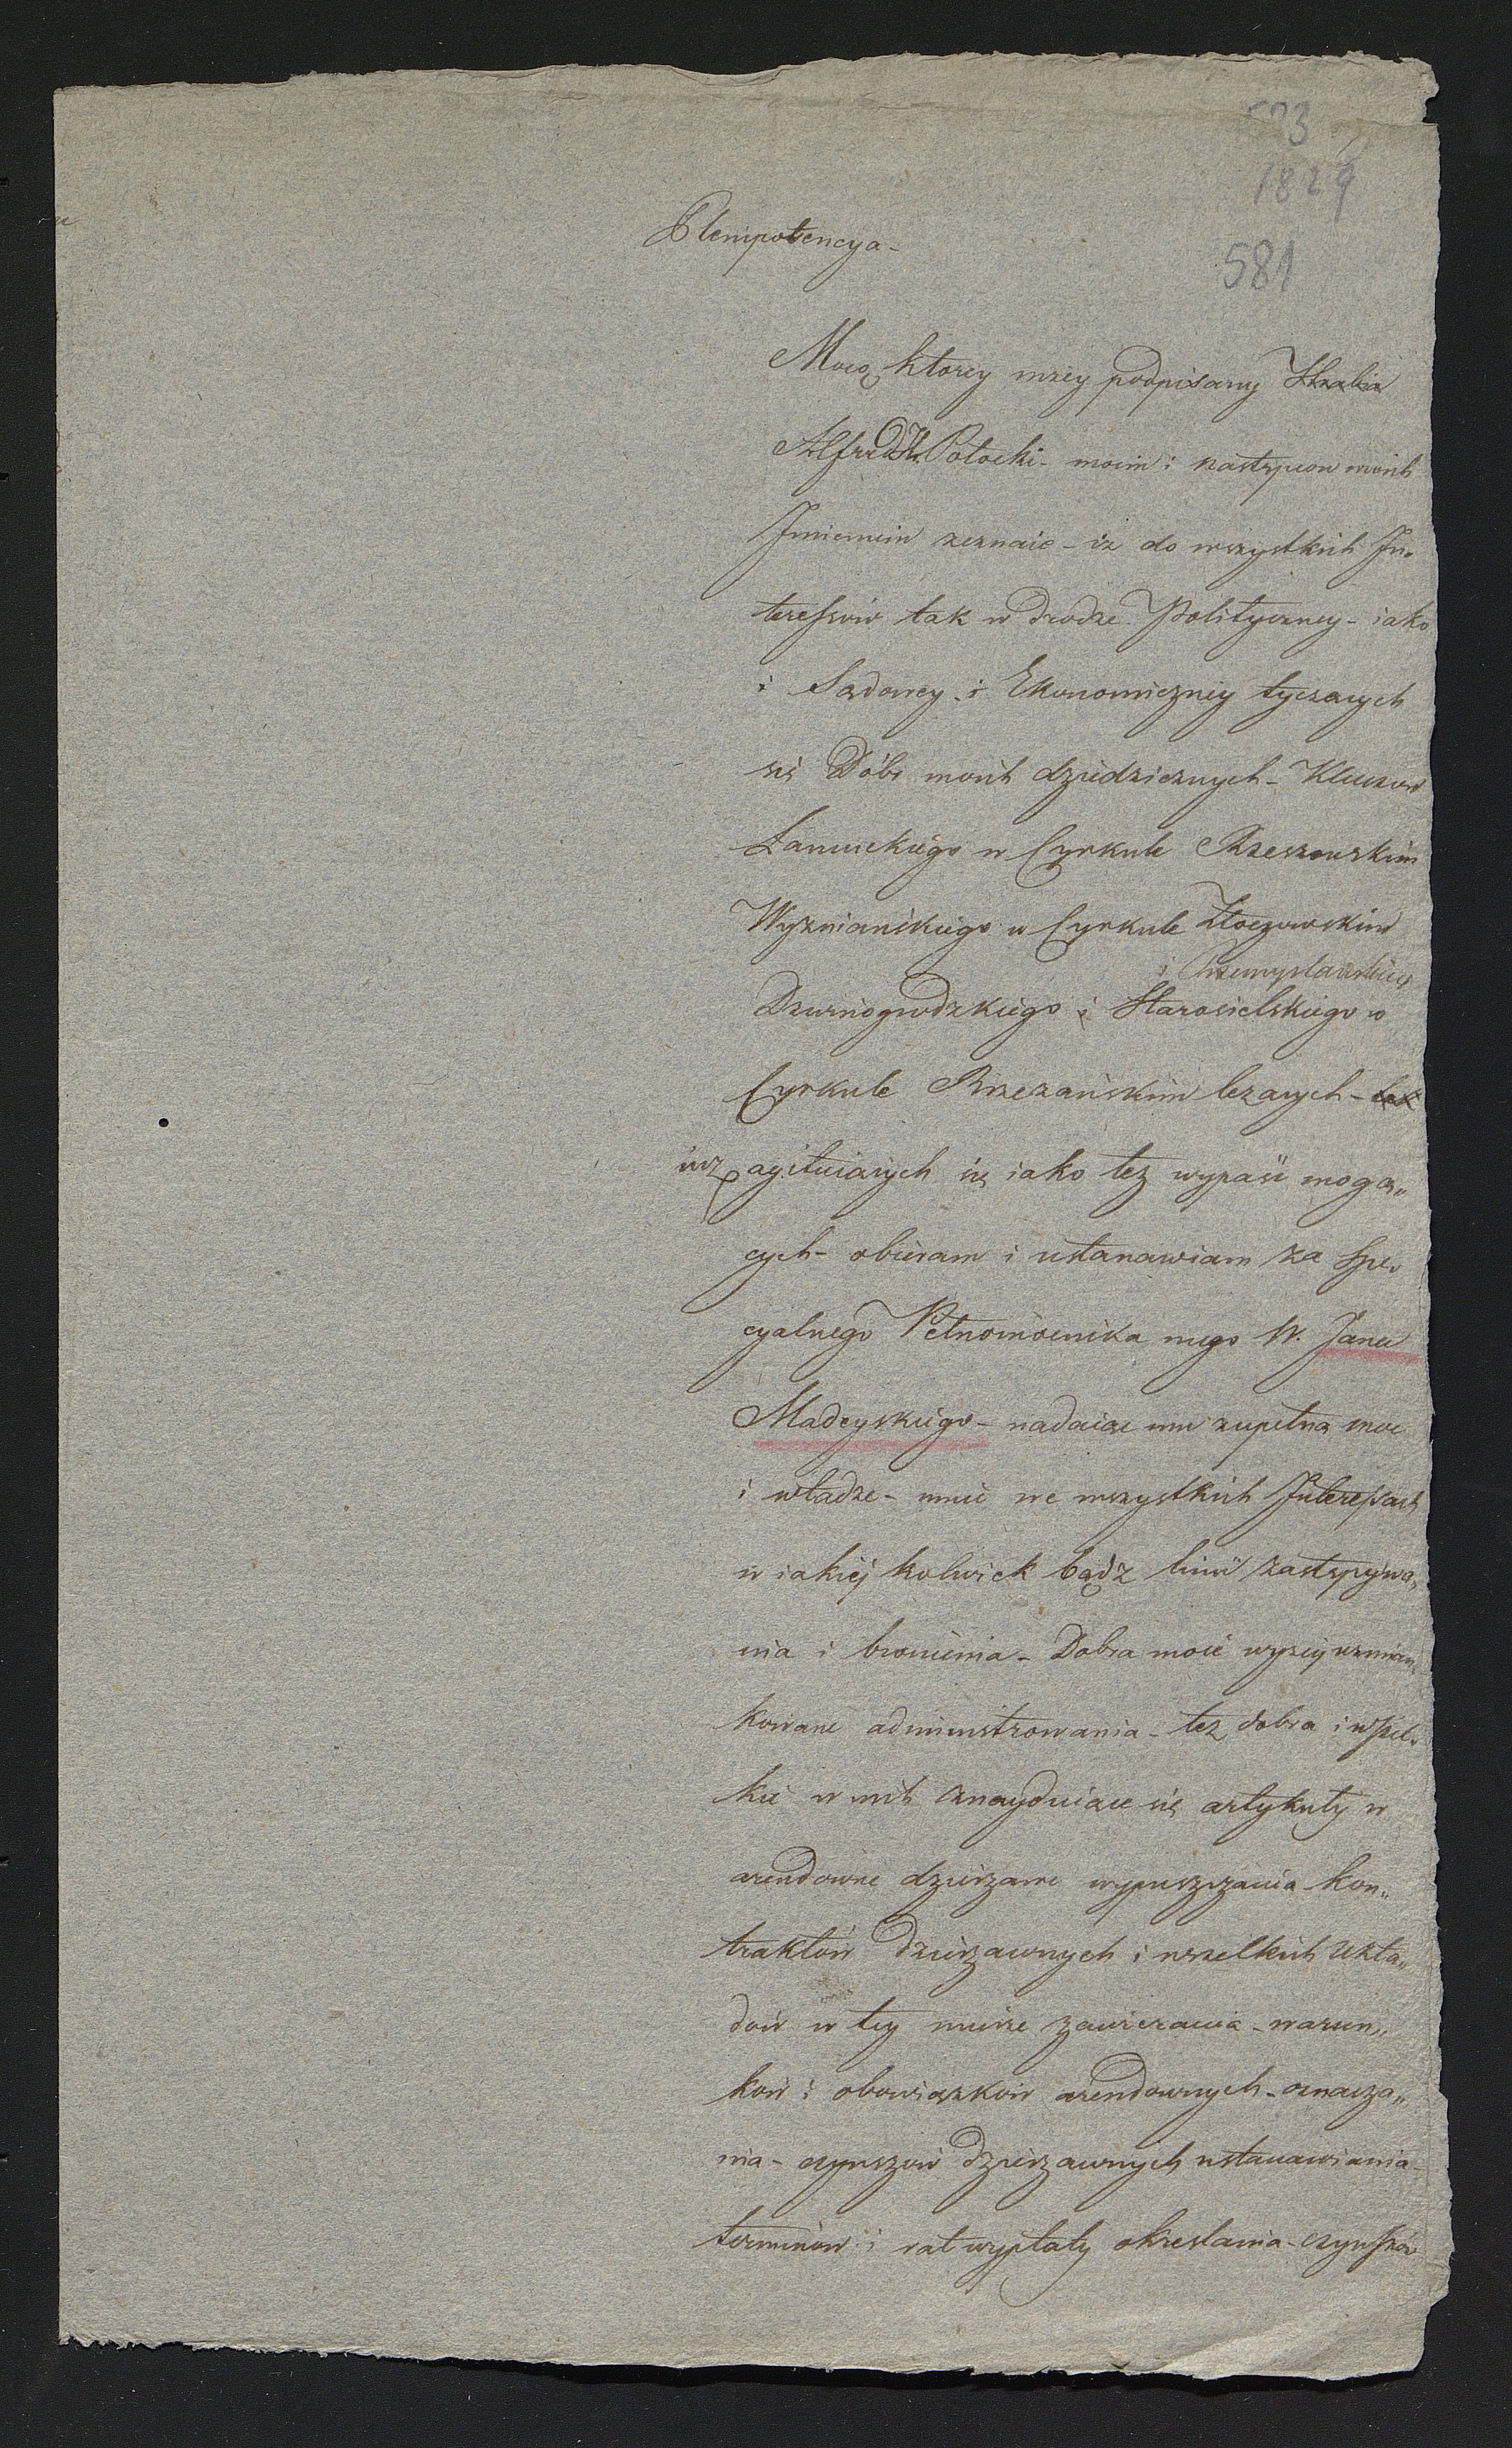 573
1829
581
Plenipotencya -
Mocą ktorey niżey podpisany Hrabia
Alfred Hr. Potocki - moim i następcow moich
Jmieniem zeznaie - iż do wszystkich In-
teressów tak w drodze Polityczney - iako
i Sądowey i Ekonomiczney tyczących
się Dóbr moich dziedzicznych - Kluczow
Łancuckiego w Cyrkule Rzeszowskim
Wyżnianskiego w Cyrkule Złoczowskim
i Przemyslańskiego
Dzwinogrodzkiego i Starosielskiego w
Cyrkule Brzeżańskim leżących - tak
iuż agituiących się iako też wypaść mogą„
cych - obieram i ustanawiam za Spe-
cyalnego Pełnomocnika mego W. Jana
Madeyskiego - nadaiąc mu zupełną moc
i władze - mnie we wszystkich Interessach
w iakiej kolwiek bądź linii zastępywa„
nia i bronienia - Dobra moie wyżey wzmian„
kowane administrowania - też dobra i wszel-
kie w nich znayduiące się artykuły w
arendowne dzierżawe wypuszczania - kon„
traktów dzierżawnych i wszelkich Ukła„
dów w tey mierze zawierania - warun„
ków i obowiązków arendownych - oznacza„
nia - czynszów dzierżawnych ustanawiania -
terminów i rat wypłaty okreslania - czynszów